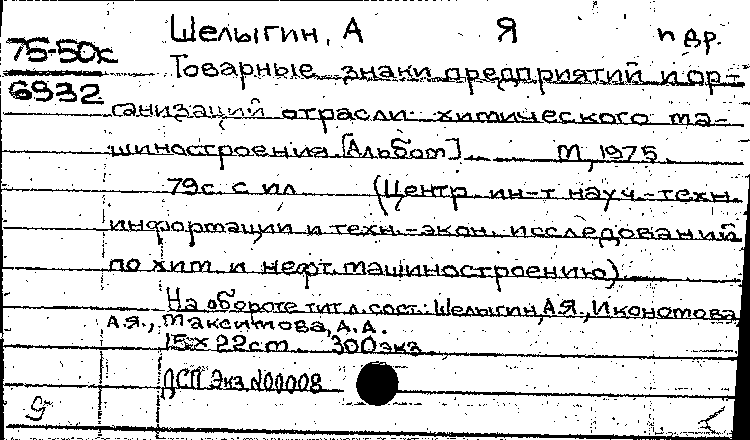 Шелыгин, А Я и др.
75-50с
6932
Товарные знаки предприятий и ор-
ганизаций отрасли химического ма-
шиностроения [Альбом] М, 1975.
79с. с ил (Центр. ин-т науч.-техн.
информации и техн.-экон. исследований
по хим. и нефт. машиностроению)
На обороте тит. л. сост.: Шелыгин, А.Я., Икономова,
А.Я., Максимова, А.А.
15 x 22см 300экз
ДСП Экз. N00008